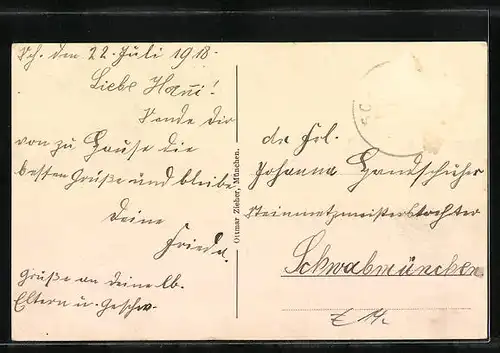 Sch. den 22. Juli 1918.
Liebe Hani!
Sende Dir
von zu Hause die
besten Grüße und bleibe
Deine
Frieda.
Grüße an Deine lb.
Eltern u. Geschw.
Ottmar Zieher, München.
Frl.
Johanna Handschuher
Steinmetzmeisterstochter
Schwabmünchen